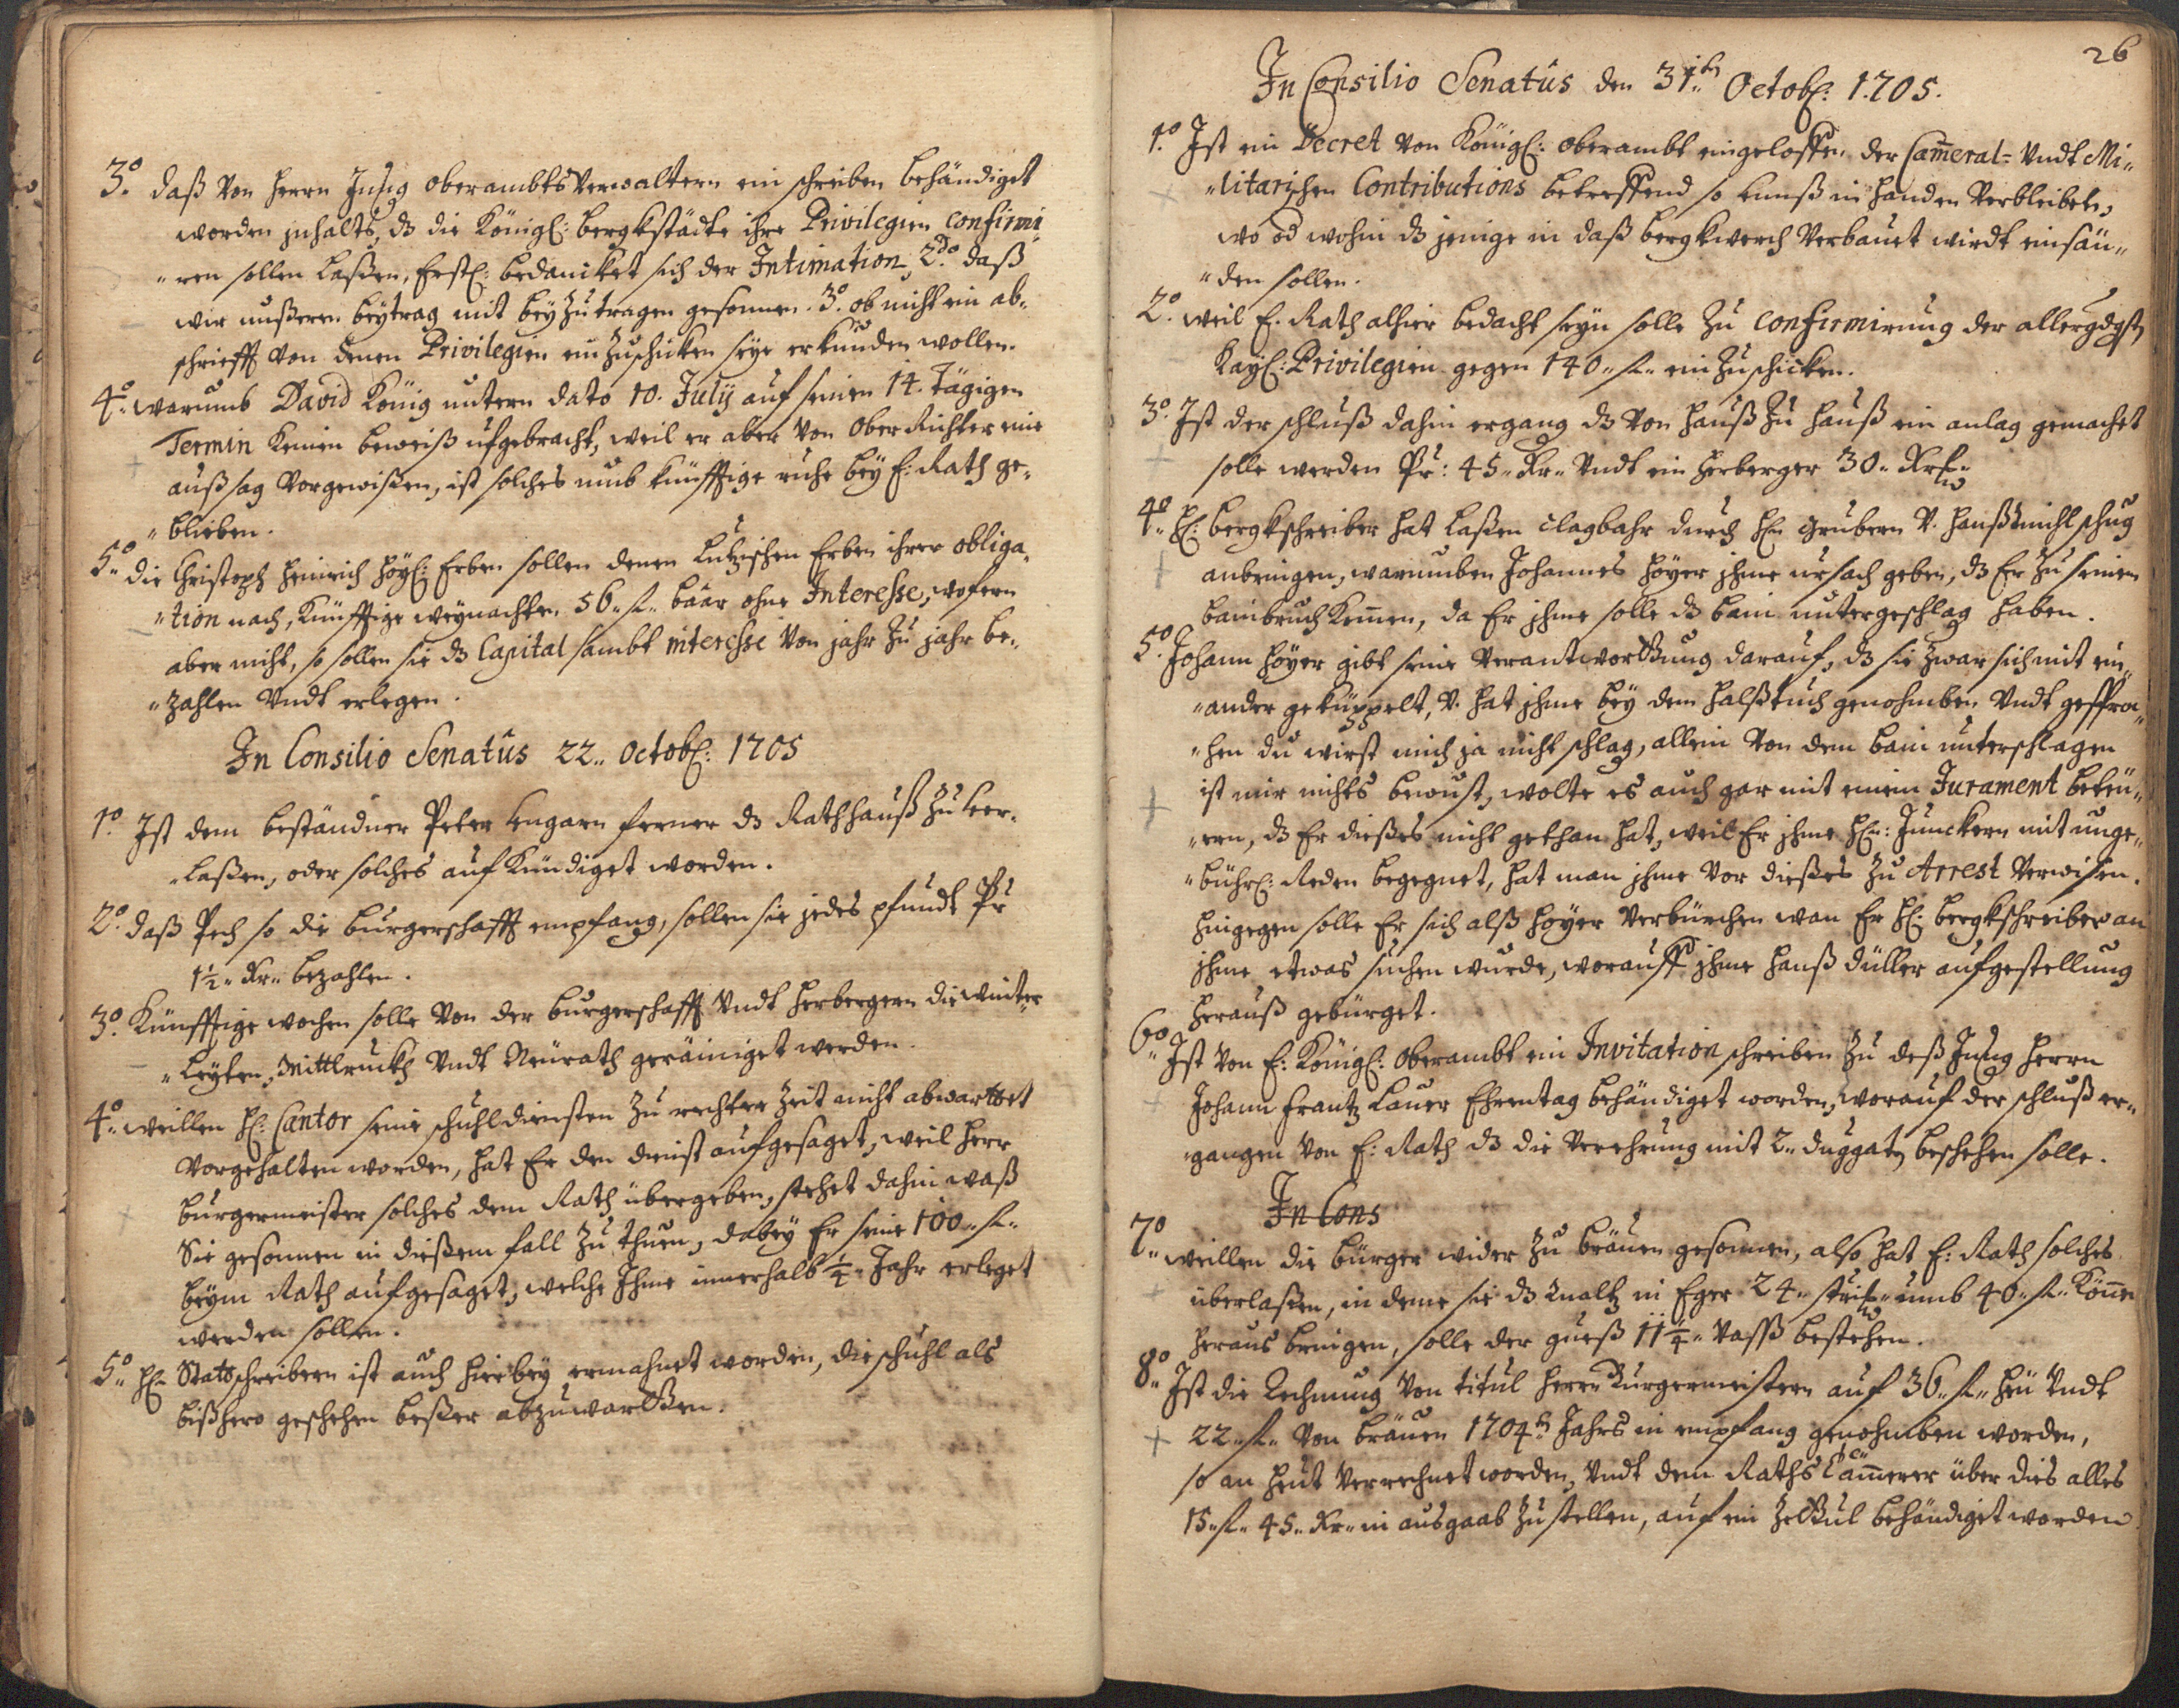 3.º daß von Herrn Jung oberambtsverwaltern ein schreiben behändiget
worden jnhalts, dz die Königl: bergkstädte ihre Privilegien confirmi„
„ren sollen laßen, Erstl: bedancket sich der Intimation, 2do daß
wir unßeren beytrag mit bey zu tragen gesonnen. 3.º ob nicht ein ab„
schriefft von denen Privilegien ein zu schicken seye erkunden wollen.
4.º warumb David König untern dato 10. Julij auf seinen 14. Tägigen
Termin keinen beweiß ufgebracht, weil er aber von Ober Richter eine
außsag vorgewißen, ist solches umb künfftige ruhe bey E: Rath ge„
„blieben.
5.º die Christoph Heinrich Höyl: Erben sollen denen Lutzischen Erben ihrer obliga„
„tion nach, künfftige weynachten 56 „ f „ baar ohne Interesse, wofern
aber nicht, so sollen sie dz Capital sambt interesse von jahr zu jahr be„
„zahlen vndt erlegen.
In Consilio Senatûs 22 „ Octobr: 1705
1.º Ist dem beständner Peter Lengarn ferner dz Rathhauß zu ver„
„laßen, oder solches auf kündiget worden.
2.º daß Pech so die burgerschafft empfang, sollen sie jedes pfundt Pr
1½ „ Kr „ bezahlen.
3.º Künfftige wochen solle von der burgerschafft vndt Herbergern die winter
„leyten, Mittlruckh vndt Neurath geräiniget werden.
4.º weillen H: Cantor seine schuhldiensten zu rechter zeit nicht abwarttet
vorgehalten worden, hat Er den dienst aufgesaget, weil Herr
burgermeister solches dem Rath übergeben, stehet dahin waß
Sie gesonnen in dießem fall zu thuen, dabey Er seine 100 „ f „
beym Rath aufgesaget, welche Jhme innerhalb ¼ „ Jahr erleget
werden sollen.
5.º H: Stattschreibern ist auch hierbey ermahnet worden, die schuhl als
bißhero geschehen beßer abzuwartten.
26
In Consilio Senatûs den 31.ten Octobr: 1705.
1.º Ist ein Decret von Königl: oberambt eingeloffen der Cameral- vndt Mi„
„litarischen Contributions betreffend so in handen verbleibet,
wo od wohin dz jenige in daß bergkwerch verbauet wirdt einsän„
„den sollen.
2.º weil E. Rath alhier bedacht seyn solle zu confirmirung der allergdgst
Kayl: Privilegien gegen 140 „ f „ ein zu schicken.
3.º Ist der schluß dahin ergang dz von hauß zu hauß ein anlag gemachet
solle werden Pr: 45 „ Kr „ vndt ein Herberger 30 „ Kr „
4.º H: bergkschreiber hat laßen clagbahr durch H: Grubern v. Hanß Michl schug
anbringen, warumben Johannes Höyer jhme ursach geben, dz Er zu seinem
bainbruch kommen, da Er jhme solle dz bain untergeschlag haben.
5.º Johann Höyer gibt seine verantworttung darauf, dz sie zwar sich mit ein„
„ander geküppelt, v. hat jhme bey dem halßtuch genohmben vndt gespro„
„hen du wirst mich ja nicht schlag, allein von dem bain unterschlagen
ist mir nichts bewust, wolte es auch gar mit einem Jurament beteu„
„ren, dz Er dießes nicht gethan hat, weil Er jhme H: Junckern mit unge„
„bührl: Reden begegnet, hat man jhme vor dießes zu Arrest verwisen.
hingegen solle Er sich alß Höyer verbürchen wan Er H: bergkschreiber an
jhme etwas suchen wurde, worauff jhme Hanß Düller aufgestellung
herauß gebürget.
6.º Ist von E: Königl: Oberambt ein Invitation schreiben zu deß Jung Herrn
Johann Frantz Lauer Ehrentag behändiget worden, worauf der schluß er„
„gangen von E: Rath dz die verehrung mit 2 „ duggatn beschehen solle.
In Cons
7.º weillen die bürger wider zu bräuen gesonnen, also hat E: Rath solches
überlaßen, in deme sie dz maltz in Eger 24 „ strich „ umb 40 „ f „ könen
heraus bringen, solle der gueß 11¼ „ vaß bestehen.
8.º Ist die Rechnung von titul Herrn Burgermeistern auf 36 „ f „ heu vndt
22 „ f „ von bräuen 1704.ten Jahrs in empfang genohmben worden,
so an heut verrechnet worden, vndt dem Raths Cammerer über dies alles
15 „ f „ 45 „ Kr „ in ausgaab zu stellen, auf ein zettul behändiget worden